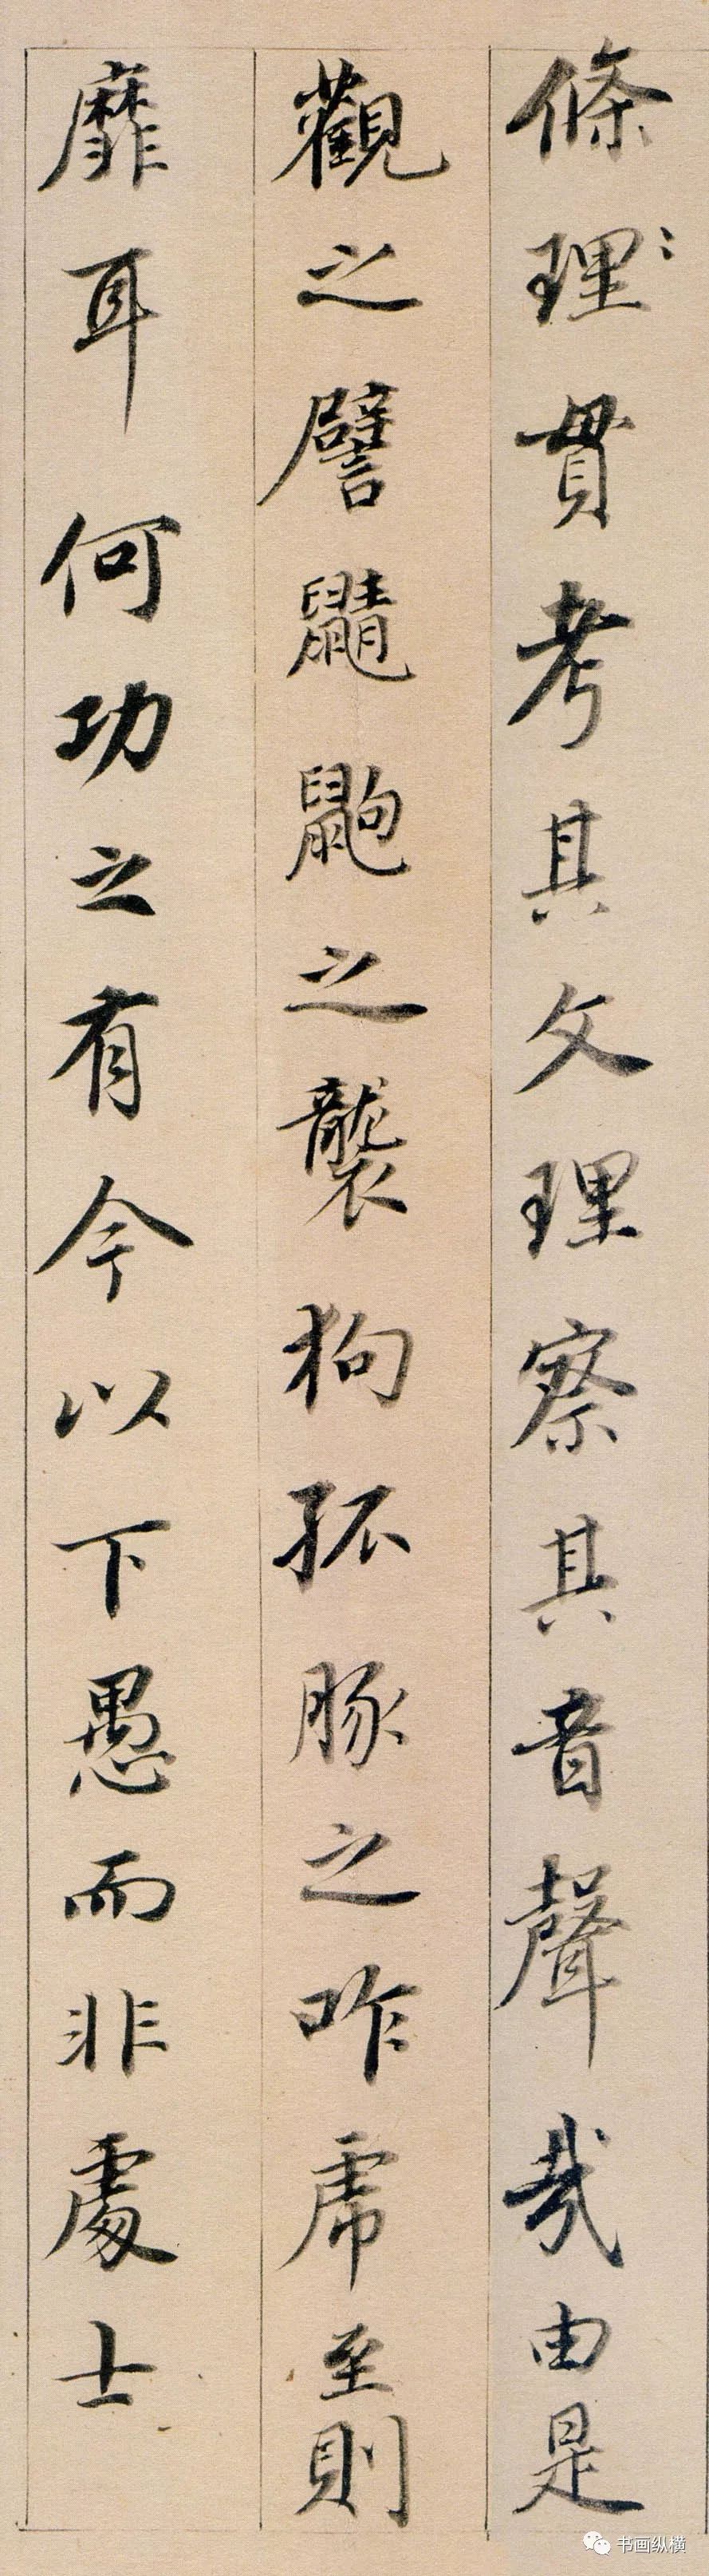 條理貫考其文理察其音聲哉由是
觀之譬鼱鼩之襲狗孤豚之咋虎至則
靡耳何功之有今以下愚而非處士
书画纵横